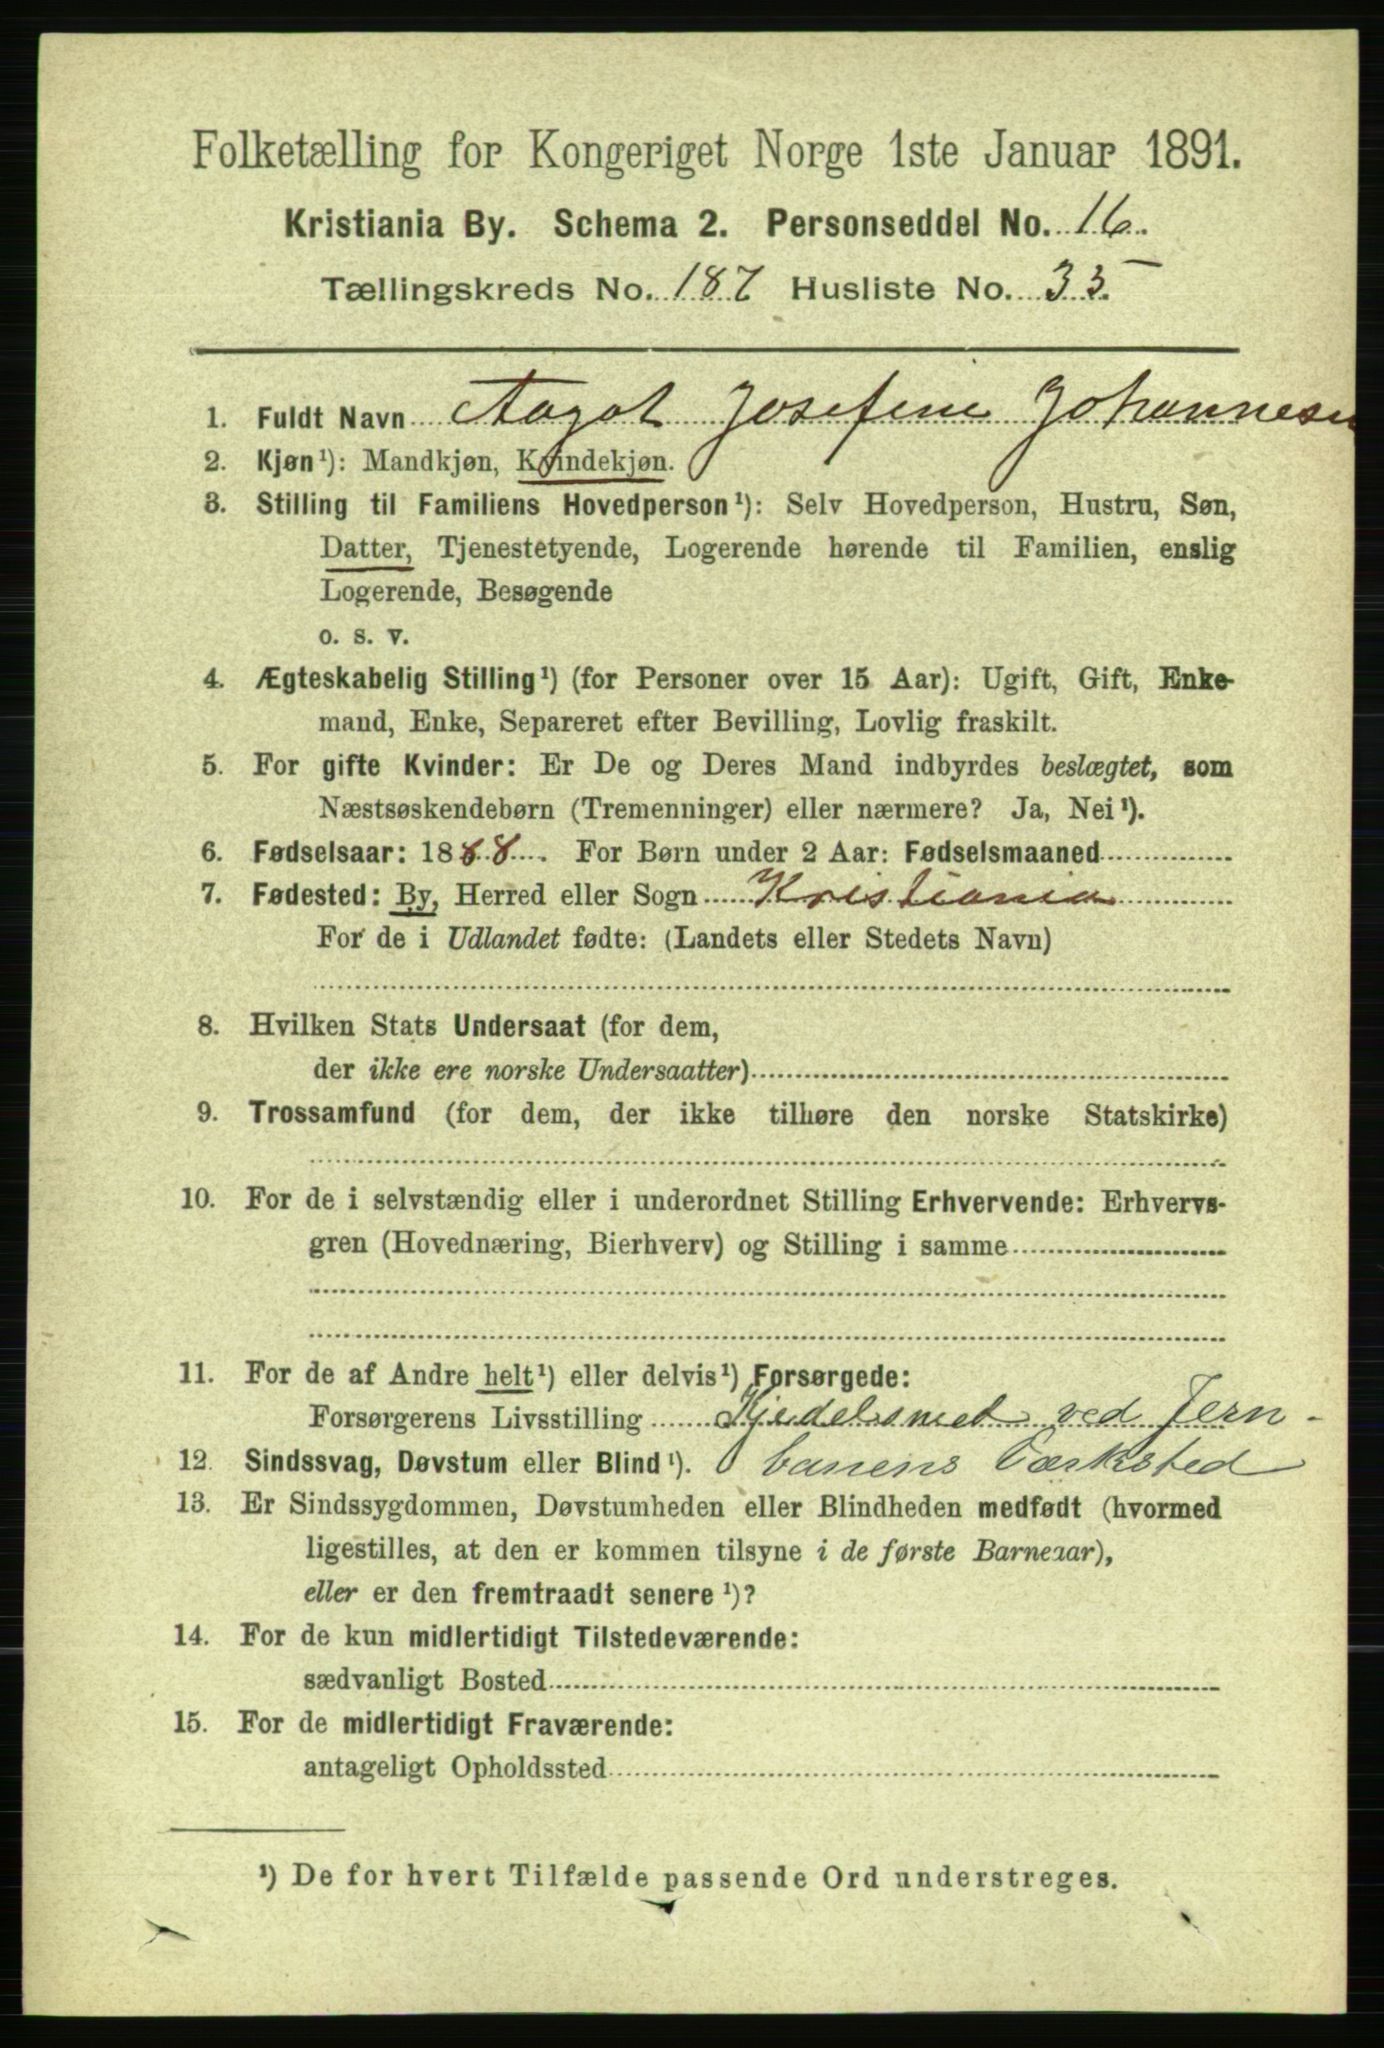 Folketælling for Kongeriget Norge 1ste Januar 1891.
Kristiania By. Schema 2. Personseddel No. 16.
Tællingskreds No. 187 Husliste No. 33
1. Fuldt Navn Aagot Josefine Johannesen
2. Kjøn¹): Mandkjøn, Kvindekjøn.
3. Stilling til Familiens Hovedperson¹): Selv Hovedperson, Hustru, Søn,
Datter, Tjenestetyende, Logerende hørende til Familien, enslig
Logerende, Besøgende
o. s. v.
4. Ægteskabelig Stilling¹) (for Personer over 15 Aar): Ugift, Gift, Enke-
mand, Enke, Separeret efter Bevilling, Lovlig fraskilt.
5. For gifte Kvinder: Er De og Deres Mand indbyrdes beslægtet, som
Næstsøskendebørn (Tremenninger) eller nærmere? Ja, Nei¹).
6. Fødselsaar: 1888. For Børn under 2 Aar: Fødselsmaaned
7. Fødested: By, Herred eller Sogn Kristiania
For de i Udlandet fødte: (Landets eller Stedets Navn)
8. Hvilken Stats Undersaat (for dem,
der ikke ere norske Undersaatter)
9. Trossamfund (for dem, der ikke tilhøre den norske Statskirke)
10. For de i selvstændig eller i underordnet Stilling Erhvervende: Erhvervs-
gren (Hovednæring, Bierhverv) og Stilling i samme
11. For de af Andre helt¹) eller delvis¹) Forsørgede:
Forsørgerens Livsstilling Kjedelsmed ved Jern-
12. Sindssvag, Døvstum eller Blind¹). banens Værksted
13. Er Sindssygdommen, Døvstumheden eller Blindheden medfødt (hvormed
ligestilles, at den er kommen tilsyne i de første Barneaar),
eller er den fremtraadt senere¹)?
14. For de kun midlertidigt Tilstedeværende:
sædvanligt Bosted
15. For de midlertidigt Fraværende:
antageligt Opholdssted
¹) De for hvert Tilfælde passende Ord understreges.